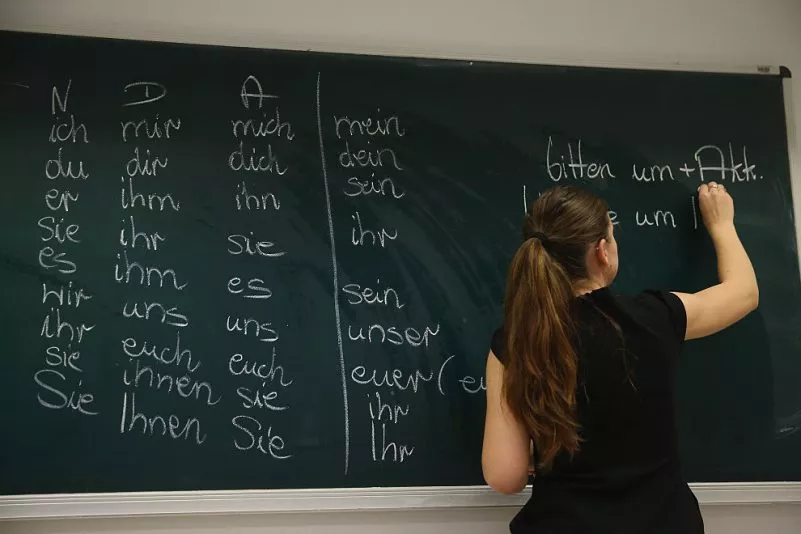 N D A
ich mir mich mein
du dir dich dein
er ihm ihn sein
Sie ihr sie ihr
es ihm es sein
wir uns uns unser
ihr euch euch euer (eu
sie ihnen sie ihr
Sie Ihnen Sie Ihr
bitten um + Akk.
um